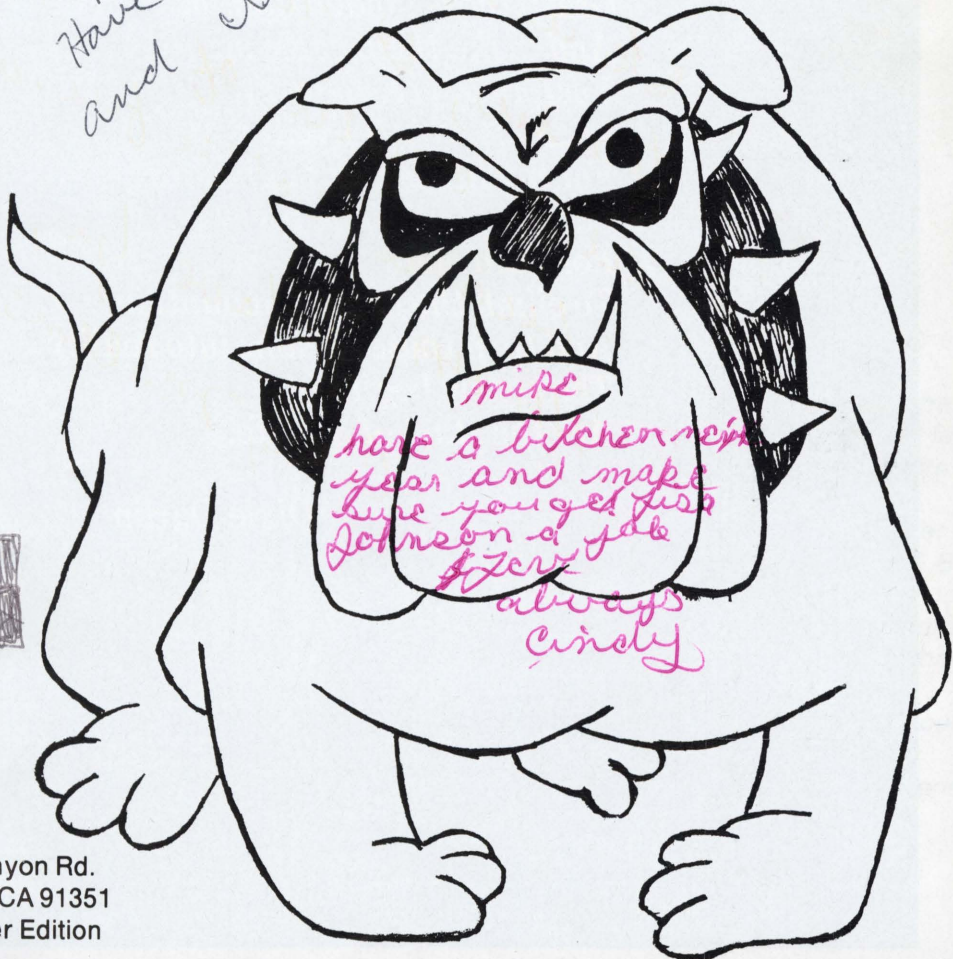 Have
and
mike
have a bitchen next
year and make
sure you get Lisa
Johnson a jole
always
Cindy
nyon Rd.
CA 91351
er Edition